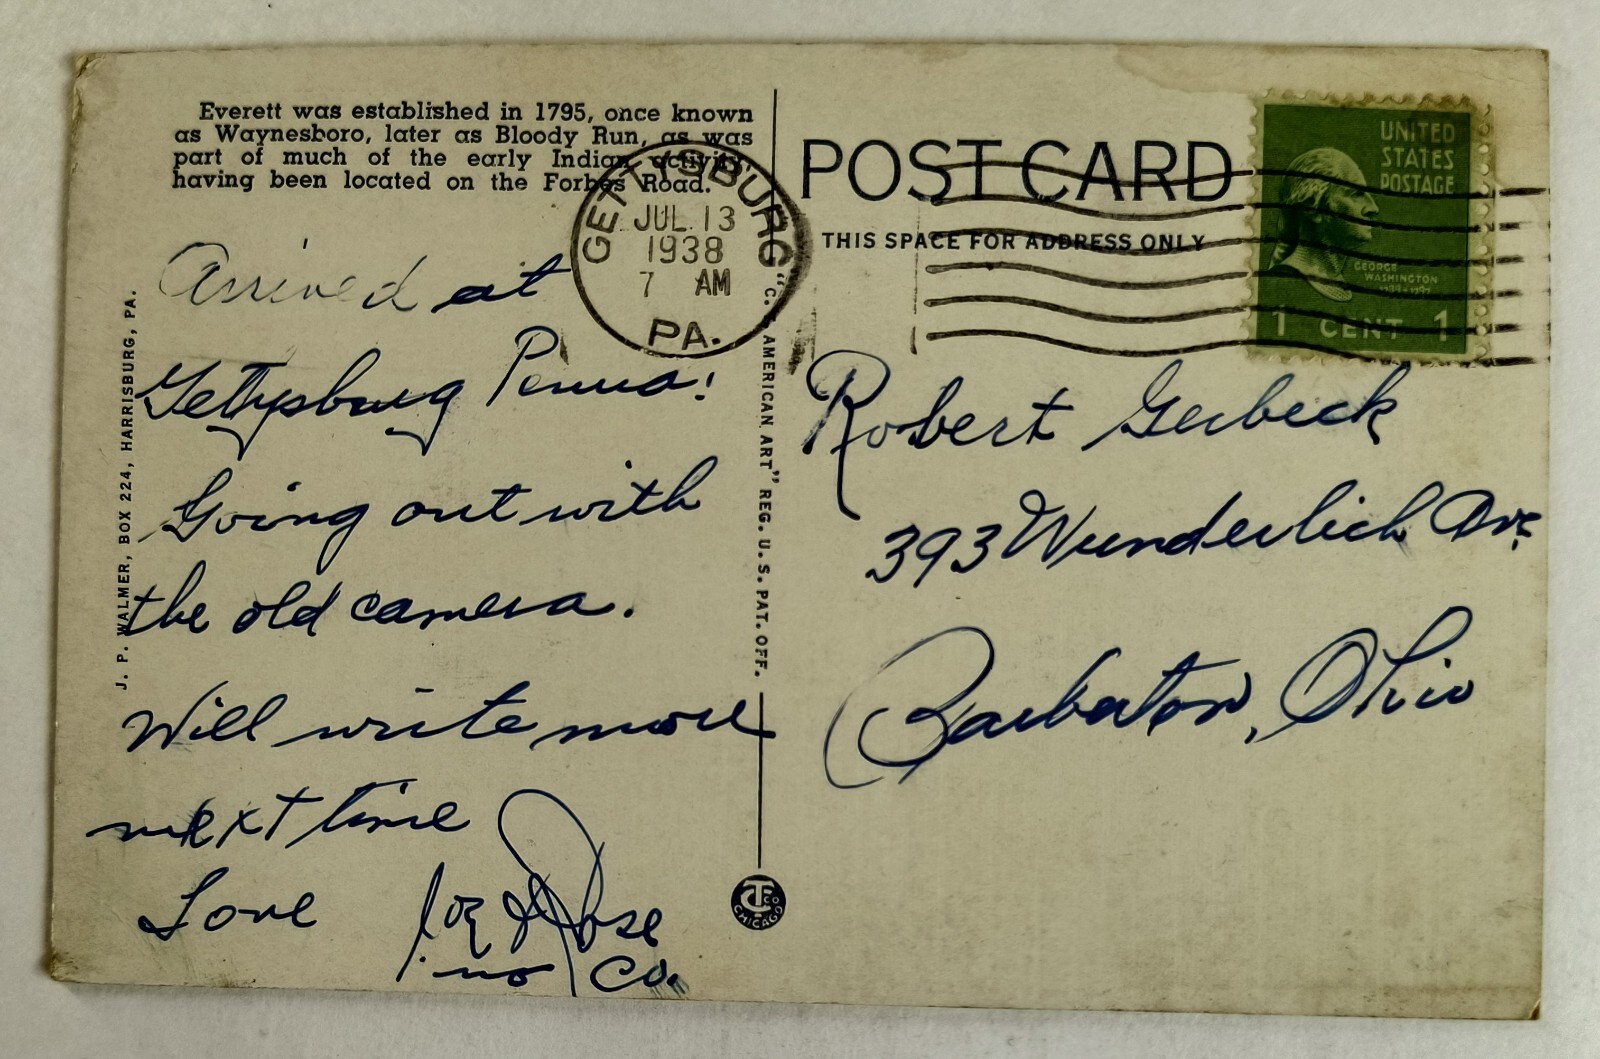 Everett was established in 1795, once known
as Waynesboro, later as Bloody Run, as was
part of much of the early Indian activity,
having been located on the Forbes Road.
POST CARD
THIS SPACE FOR ADDRESS ONLY
UNITED
STATES
POSTAGE
GEORGE
WASHINGTON
1789-1797
1 CENT 1
GETTYSBURG
JUL 13
1938
7 AM
PA.
J. P. WALMER, BOX 224, HARRISBURG, PA.
"C. T. AMERICAN ART" REG. U. S. PAT. OFF.
Arrived at
Gettysburg Penna!
Going out with
the old camera.
Will write more
next time
Love Joe & Rose
no Co.
Robert Gerbeck
393 Wunderlich Ave
Barberton, Ohio
CHICAGO